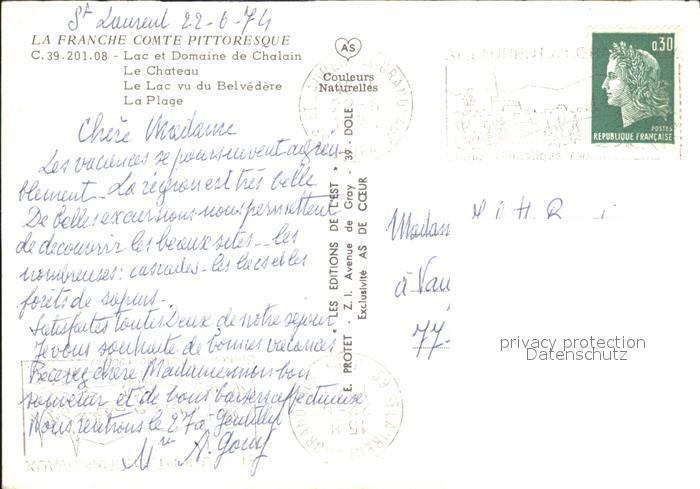 St Laurent 22-6-74
LA FRANCHE COMTE PITTORESQUE
C.39.201.08 - Lac et Domaine de Chalain
Le Chateau
Le Lac vu du Belvédère
La Plage
AS
Couleurs
Naturelles
0,30
POSTES
REPUBLIQUE FRANÇAISE
Chère Madame
Les vacances se poursuivent agréa-
blement - La région est très belle
De belles excursions nous permettent
de decouvrir les beaux sites - les
nombreuses cascades - les lacs et les
forêts de sapins.
Satisfaites toutes Deux de notre séjour
Je vous souhaite de bonnes vacances
Recevez chère Madame mon bon
souvenir et de bons baisers affectueux
Nous rentrons le 27 à Gentilly
Mme A.
« LES EDITIONS DE L'EST »
E. PROTET - Z. I. Avenue de Gray - 39 - DOLE
Exclusivité AS DE CŒUR
Madam
à Vau
77-
privacy protection
Datenschutz